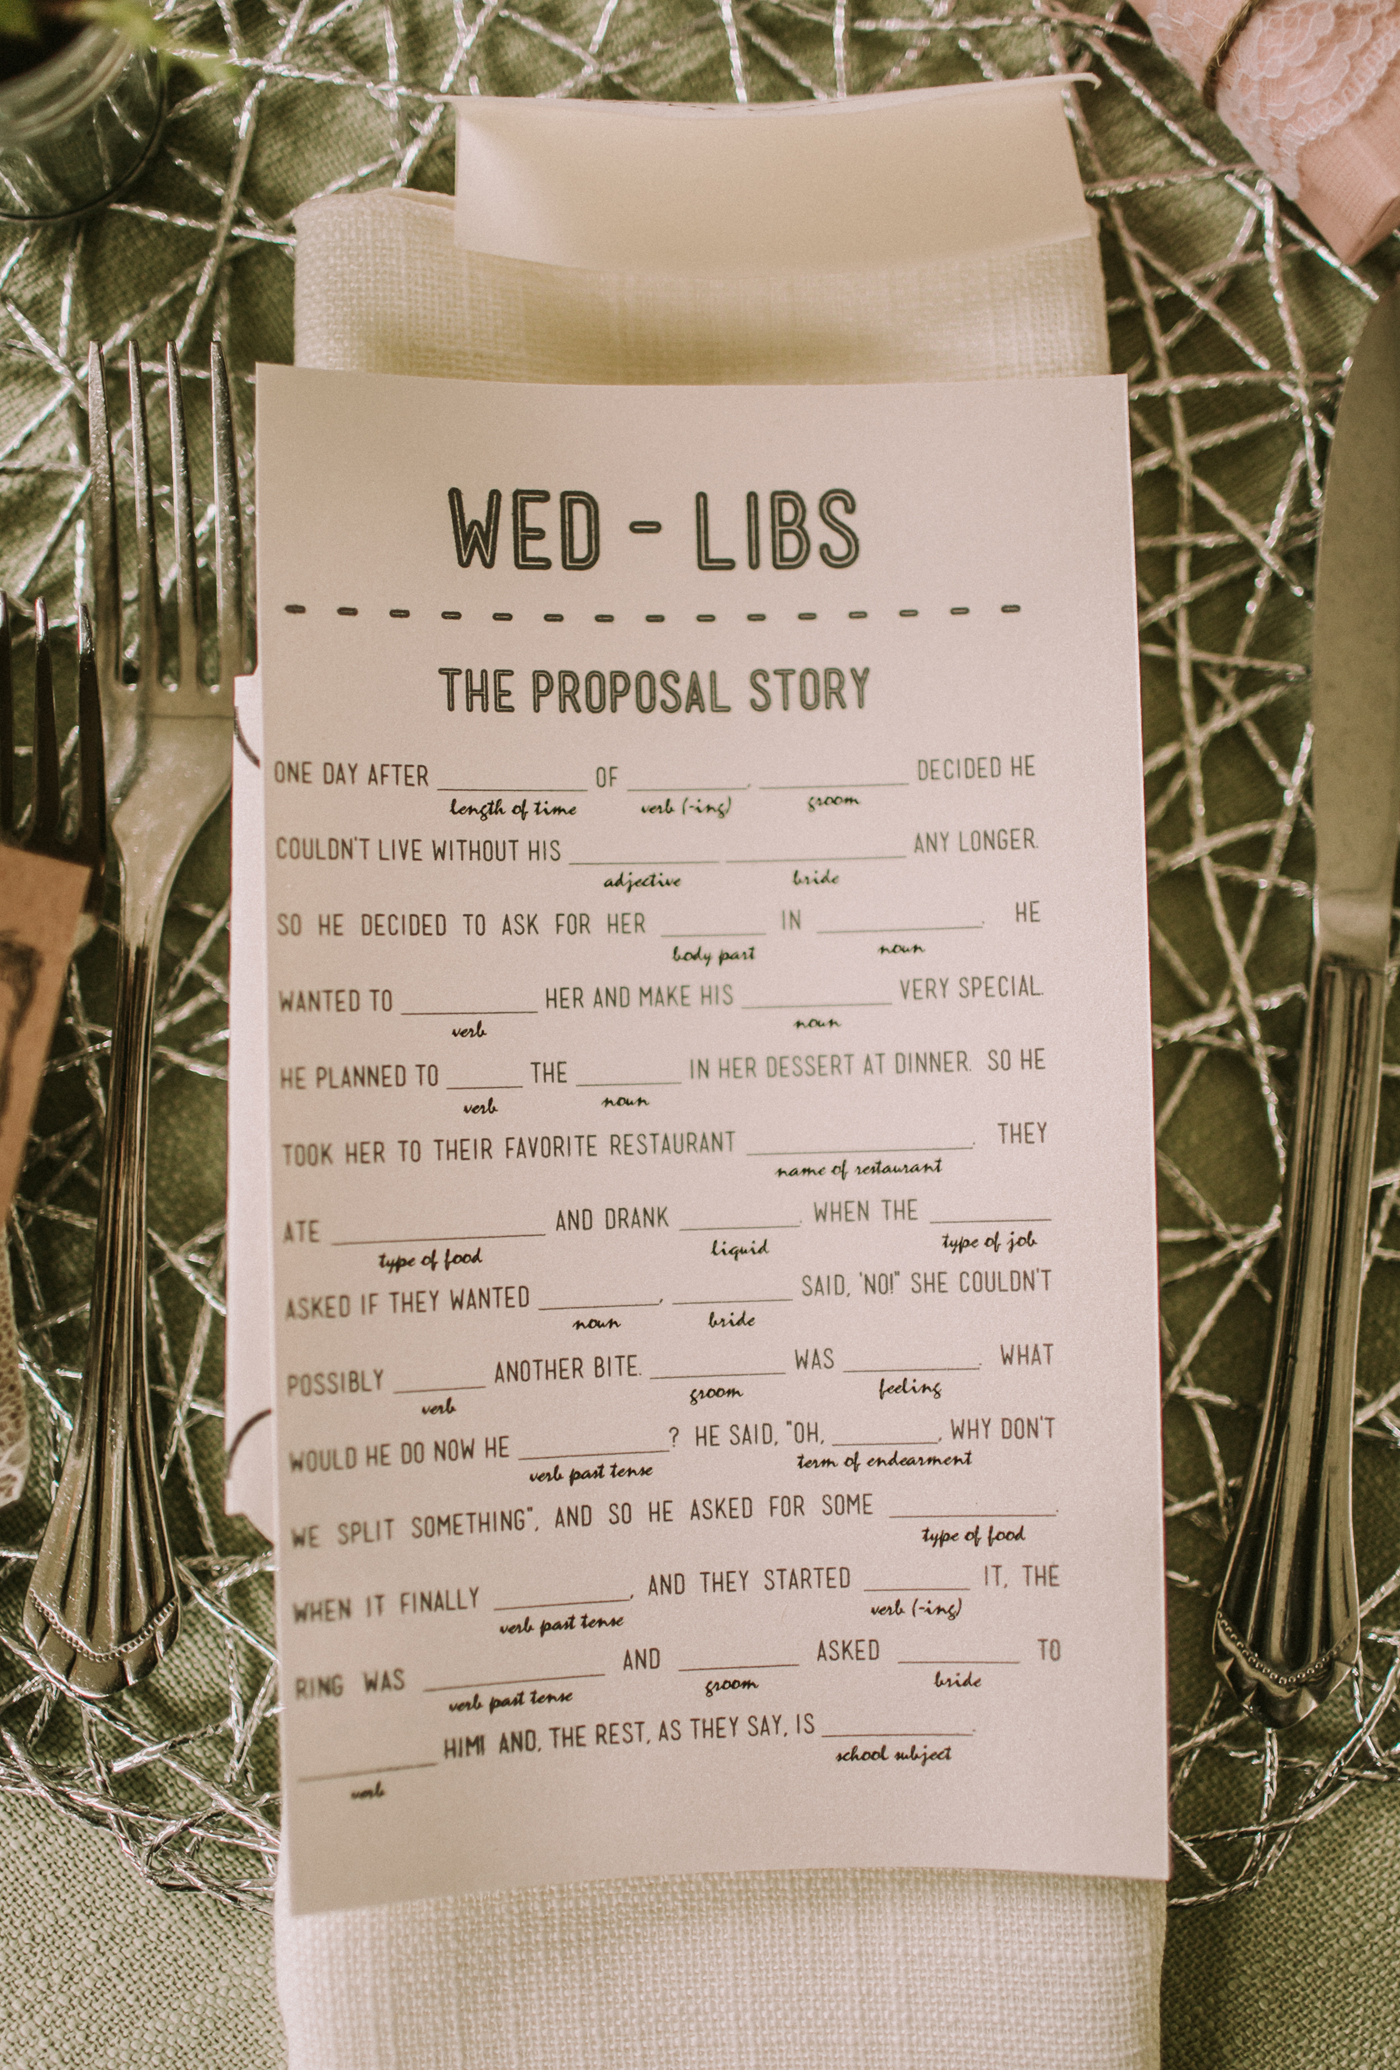 WED - LIBS
THE PROPOSAL STORY
ONE DAY AFTER __________ OF __________, __________ DECIDED HE
length of time verb (-ing) groom
COULDN'T LIVE WITHOUT HIS __________ __________ ANY LONGER.
adjective bride
SO HE DECIDED TO ASK FOR HER __________ IN __________. HE
body part noun
WANTED TO __________ HER AND MAKE HIS __________ VERY SPECIAL.
verb noun
HE PLANNED TO __________ THE __________ IN HER DESSERT AT DINNER. SO HE
verb noun
TOOK HER TO THEIR FAVORITE RESTAURANT __________. THEY
name of restaurant
ATE __________ AND DRANK __________. WHEN THE __________
type of food liquid type of job
ASKED IF THEY WANTED __________, __________ SAID, 'NO!" SHE COULDN'T
noun bride
POSSIBLY __________ ANOTHER BITE. __________ WAS __________. WHAT
verb groom feeling
WOULD HE DO NOW HE __________? HE SAID, "OH, __________, WHY DON'T
verb past tense term of endearment
WE SPLIT SOMETHING", AND SO HE ASKED FOR SOME __________.
type of food
WHEN IT FINALLY __________, AND THEY STARTED __________ IT, THE
verb past tense verb (-ing)
RING WAS __________ AND __________ ASKED __________ TO
verb past tense groom bride
__________ HIM! AND, THE REST, AS THEY SAY, IS __________.
verb school subject